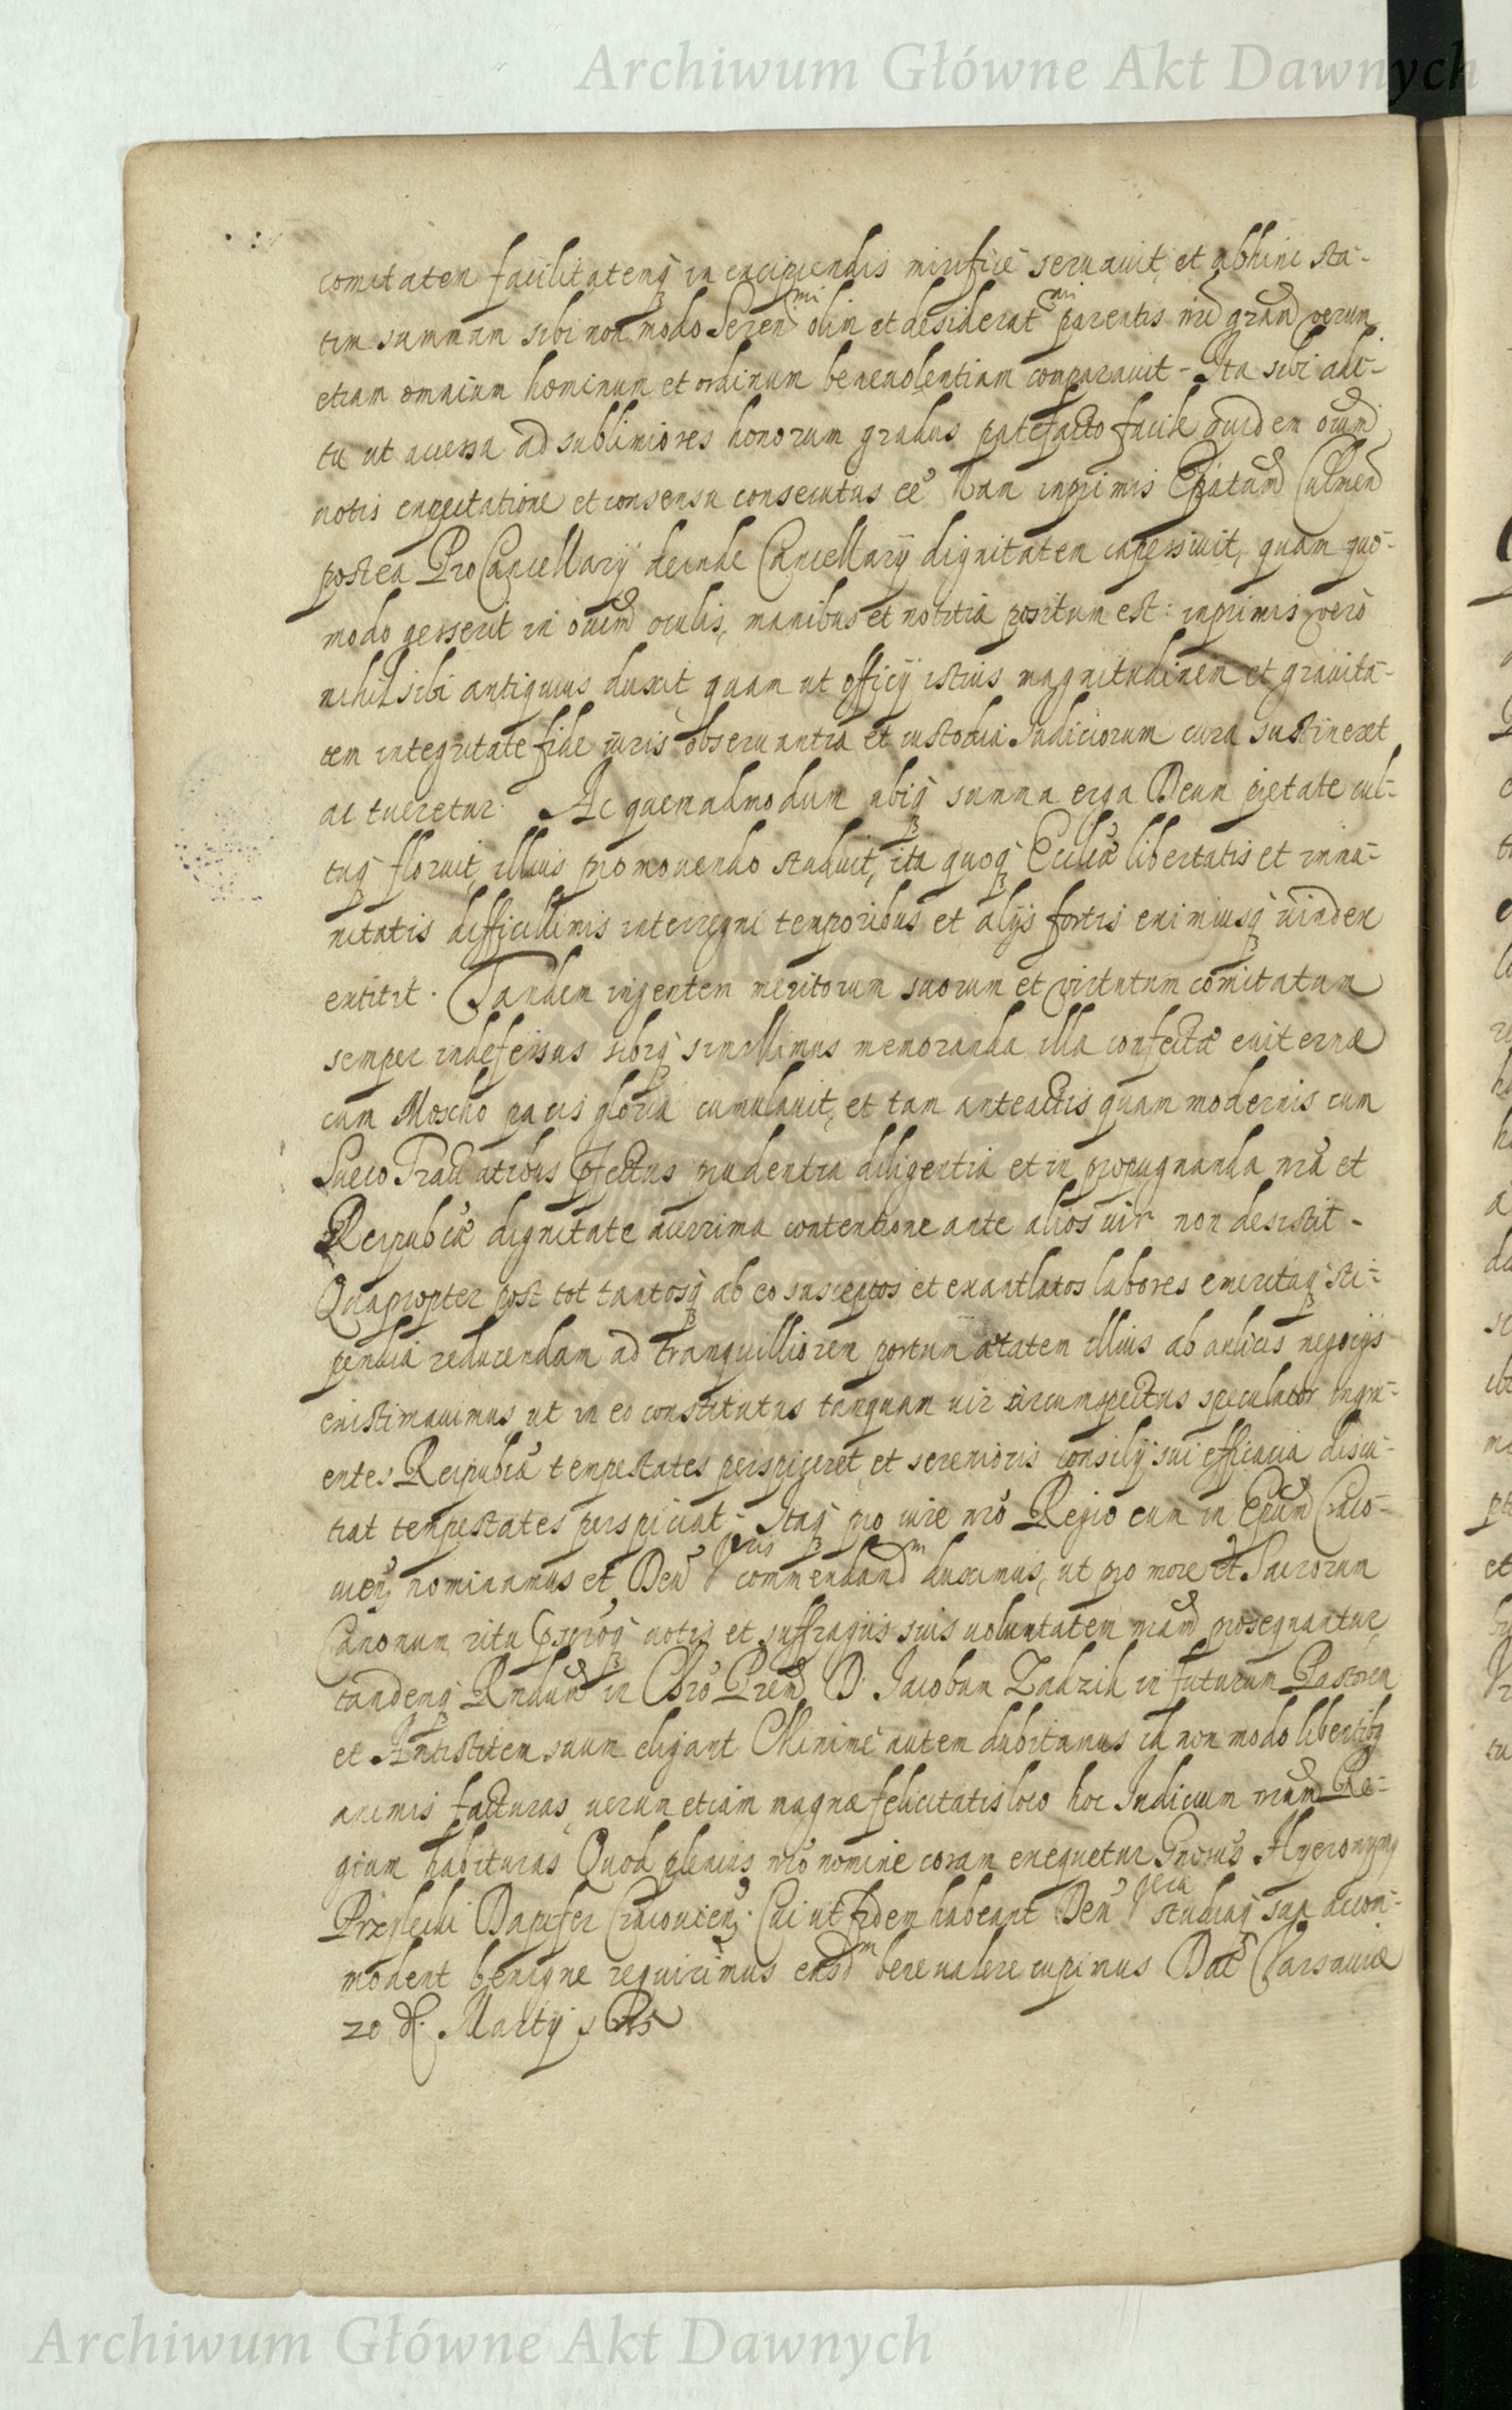 Archiwum Główne Akt Dawnych
comitatem facilitatemq in excipiendis mirifice seruauit, et abhinc sta-
tim summam sibi non modo Seren mi olim et desiderat mi parentis nri gram verum
etiam omnium hominum et ordinum beneuolentiam comparauit - Ita sibi adi-
tu ut accessu ad sublimiores honorum gradus patefacto facile quidem oium
notis expectatione et consensu consecutus ee Nam inprimis Epatum Culmen
postea ProCancellarij deinde Cancellarij dignitatem capessiuit, quam quo-
modo gesserit in oium oculis, manibus et notitia positum est: inprimis vero
nihil sibi antiquius duxit quam ut officij istius magnitudinem et grauita-
tem integritate fide iuris obseruantia et custodia Iudiciorum cura sustineret
ac tueretur. Ac quemadmodum ubiq summa erga Deum pietate cul-
tuq floruit, illius promouendo studuit, ita quoq Ecclia libertatis et immu-
nitatis difficillimis interregni temporibus et alijs fortis eximiusq uindex
extitit. Tandem ingentem meritorum suorum et virtutum comitatum
semper indefessus sibiq simillimus memoranda illa confecta euiternæ
cum Moscho pacis gloria cumulauit, et tam anteactis quam modernis cum
Sueco Tractatibus pfectus prudentia diligentia et in propugnanda nra et
Reipublcæ dignitate acerrima contentione ante alios uir non desistit -
Quapropter post tot tantosq ab eo susceptos et exantlatos labores emeritaq sti-
pendia reducendam ad tranquilliorem portum ætatem illius ab aulicis negocijs
existimauimus, ut in eo constitutus tanquam uir circumspectus speculator ingru-
entes Reipublcæ tempestates perspiceret, et serenioris consilij sui efficacia discu-
tiat tempestates perspiciat - Itaq pro iure nro Regio eum in Epum Craco-
uien, nominamus et Deu vris commendand m duximus, ut pro more et Sacrorum
Canonum ritu pscroq uotis et suffragijs suis uoluntatem nram prosequantur,
tandemq Rndum in Chro Prem D. Iacobum Zadzik in futurum Pastorem
et Antistitem suum eligant Minime autem dubitamus id non modo libentibq
animis facturas, uerum etiam magnæ felicitatis loco hoc Iudicium nrum Re-
gium habituras Quod plenius nro nomine coram exequetur Gnosus Hyeronymq
Przylecki Dapifer Cracouien. Cui ut fidem habeant Deu vra studiaq sua accom-
modent benigne requirimus easd m bene ualere cupimus Dat Varsauiæ
20 d. Martij 1635
Archiwum Główne Akt Dawnych